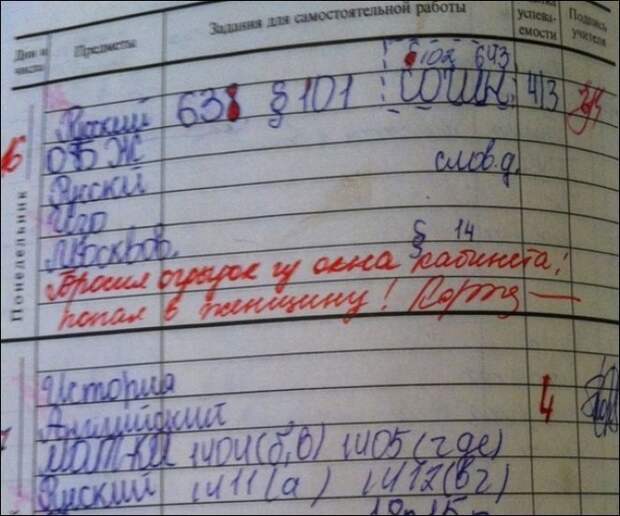 Дни и числа
Предметы
Задания для самостоятельной работы
успева-
емости
Подпись учителя
102 643
Русский 638 § 101 СОЧИН. 4/3
16
Понедельник
ОБЖ
Русский слов.д.
Изо
Москвов. § 14
Бросил огрызок из окна кабинета,
попал в женщину!
История
Английский 4
МАТ-КА 1404(б,в) 1405(где)
Руский 1411(а) 1412(вг)